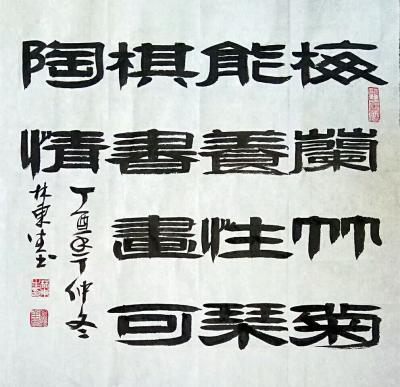 梅蘭竹菊
能養性琴
棋書畫可
陶情
丁酉年仲冬
林東生书